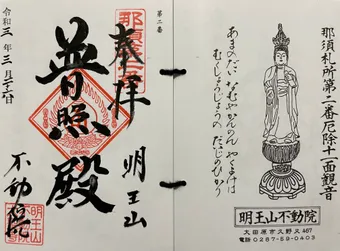 那須札所第二番厄除十一面観音
あまのだい なむやかんのん やくよけは
むくしょうじょうの だいじのひかり
明王山不動院
大田原市久野又467
電話0287-59-0403
第二番
奉拝
明王山
普照殿
不動院
令和三年三月二六日